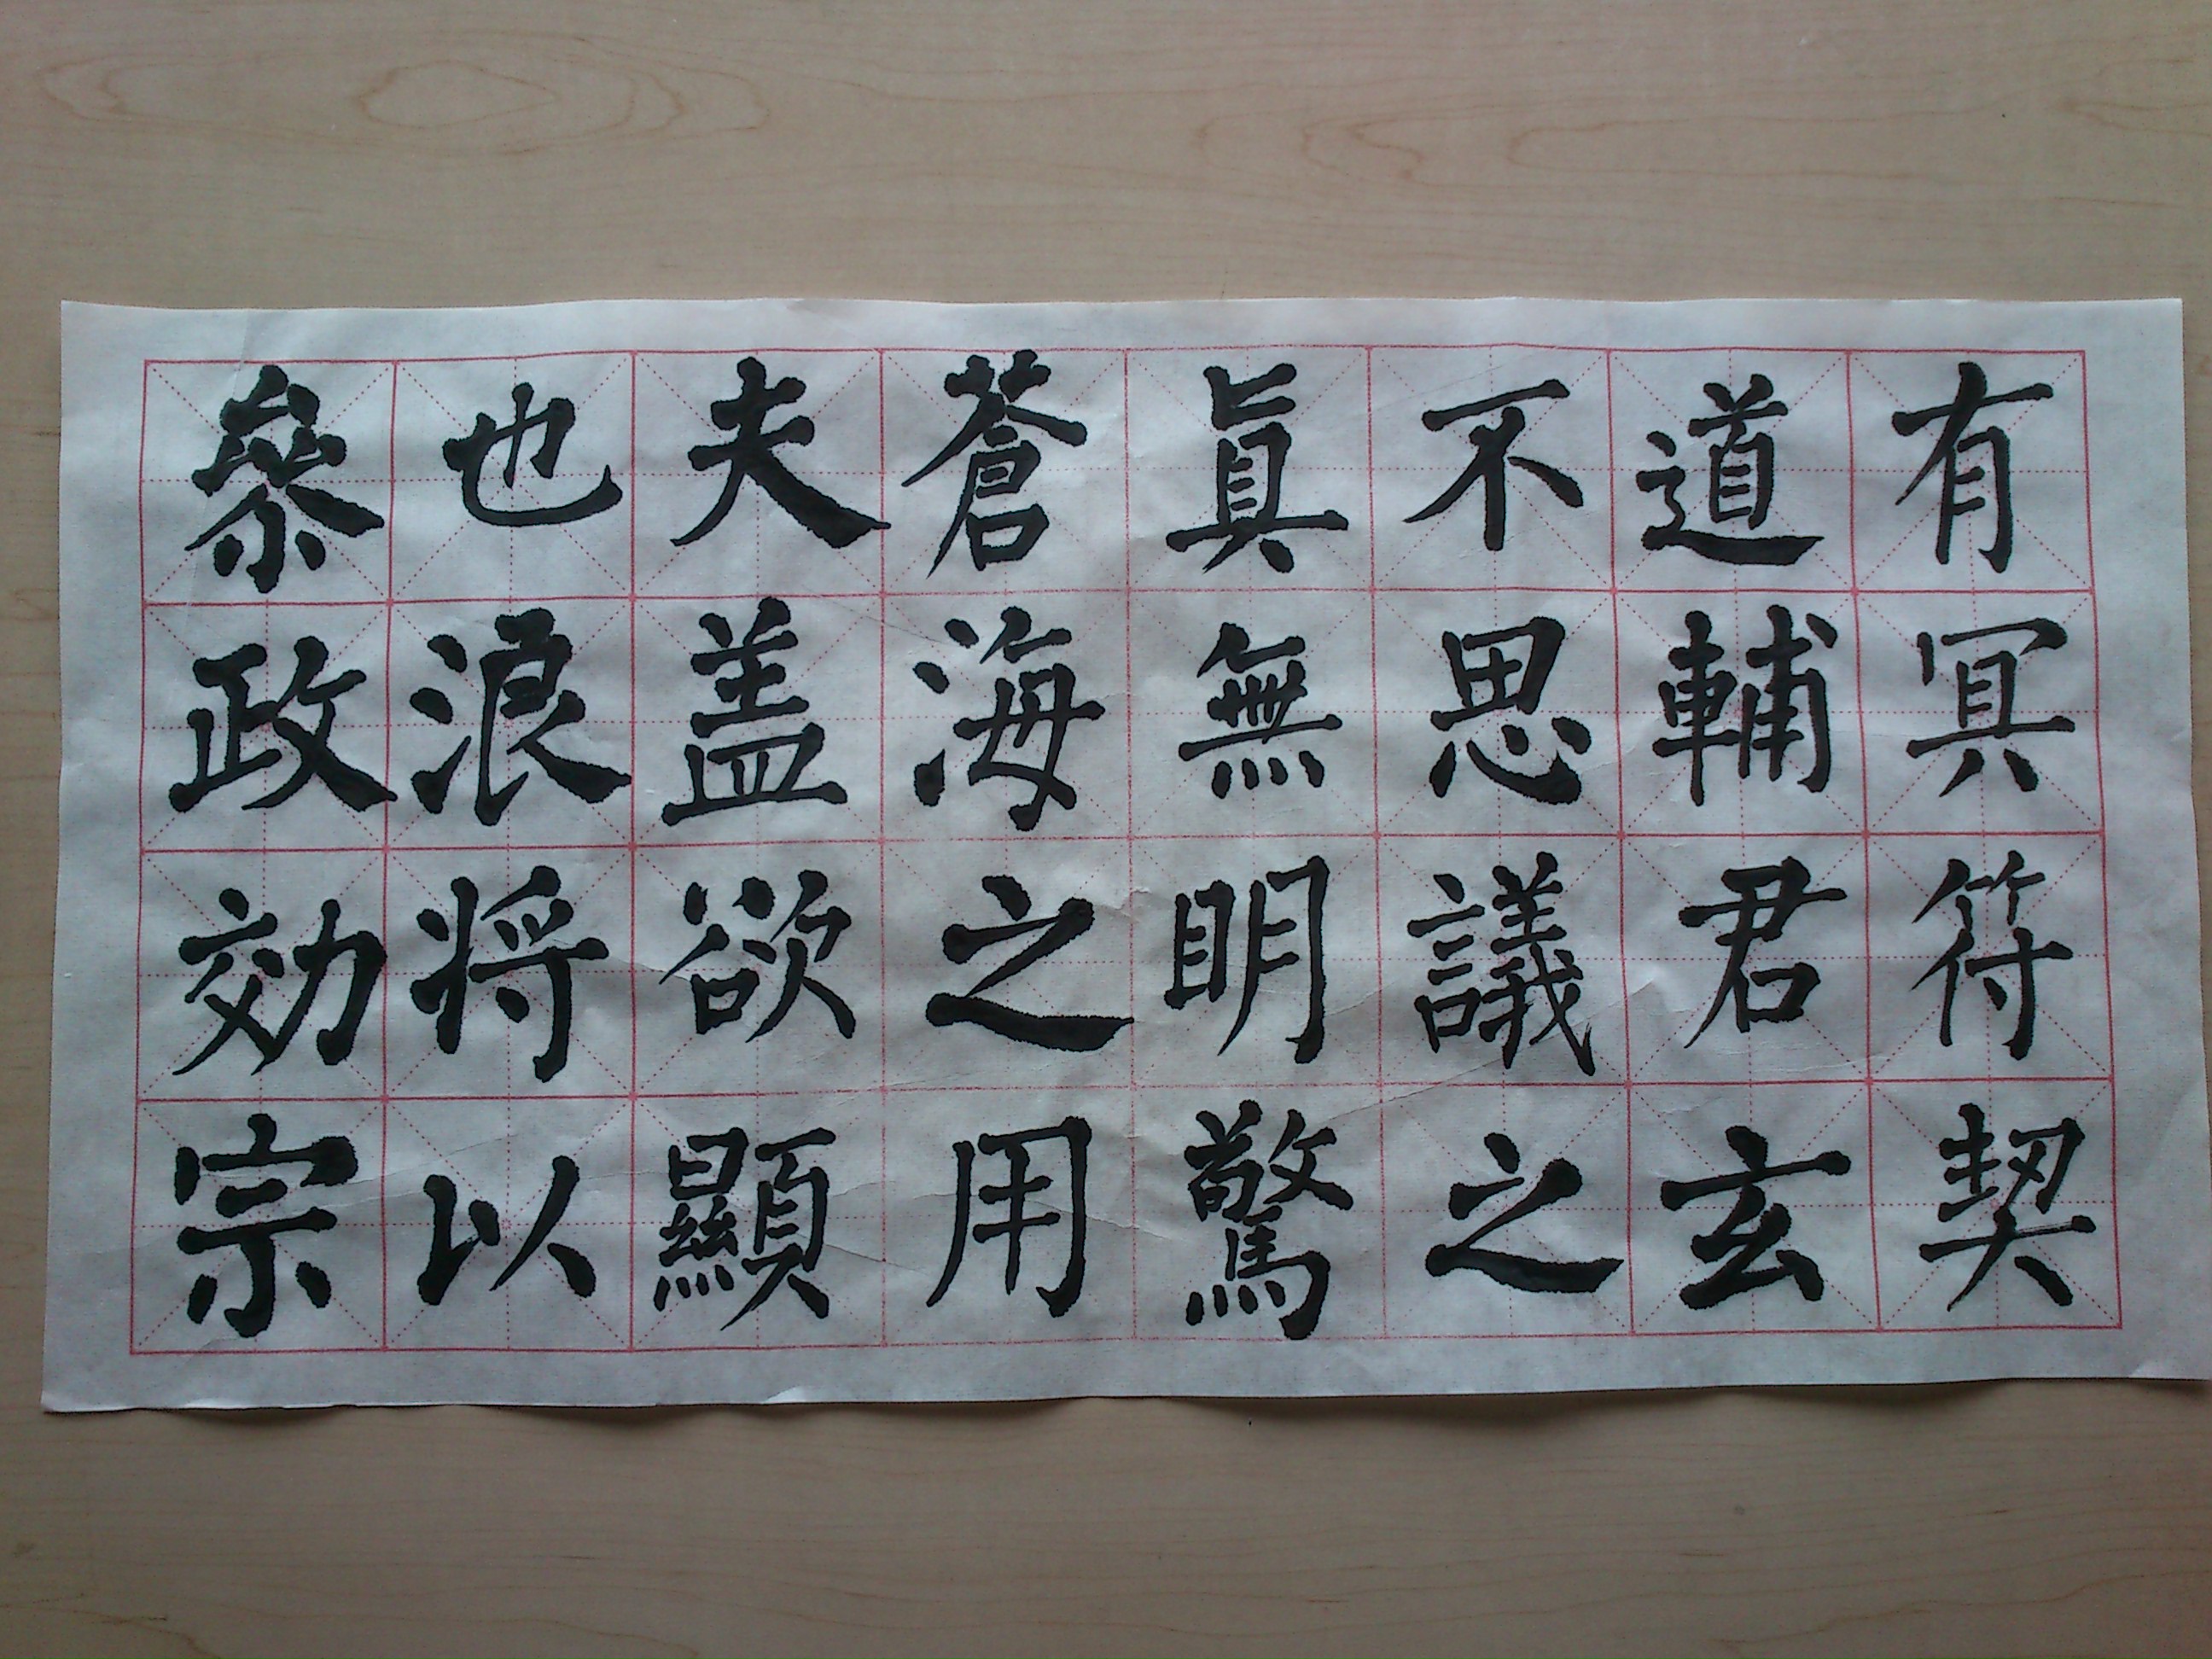 有冥符契
道輔君玄
不思議之
真無明驚
蒼海之用
夫盖欲顯
也浪将以
叅政効宗